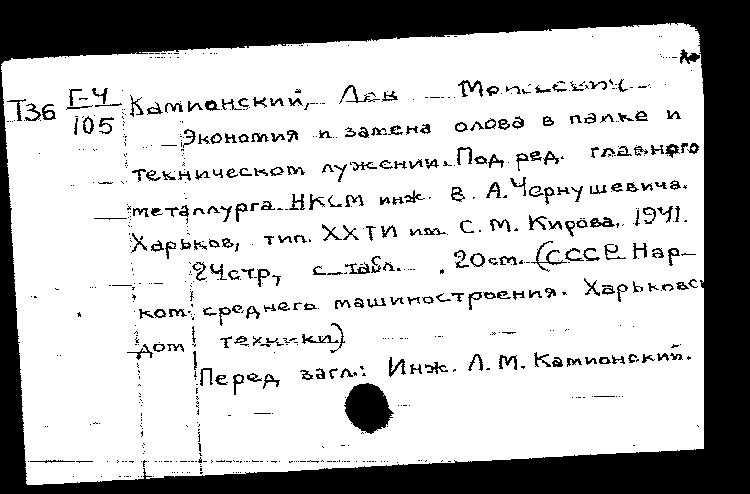 Т36 Г-4 Камионский, Лев Моисеевич
105
Экономия и замена олова в папке и
техническом лужении. Под ред. главного
металлурга НКСМ инж. В. А. Чернушевича.
Харьков, тип. ХХТИ им. С. М. Кирова, 1941.
24стр, с табл. 20см. (СССР Нар-
ком. среднего машиностроения. Харьковск
дом техники)
Перед загл.: Инж. Л. М. Камионский.